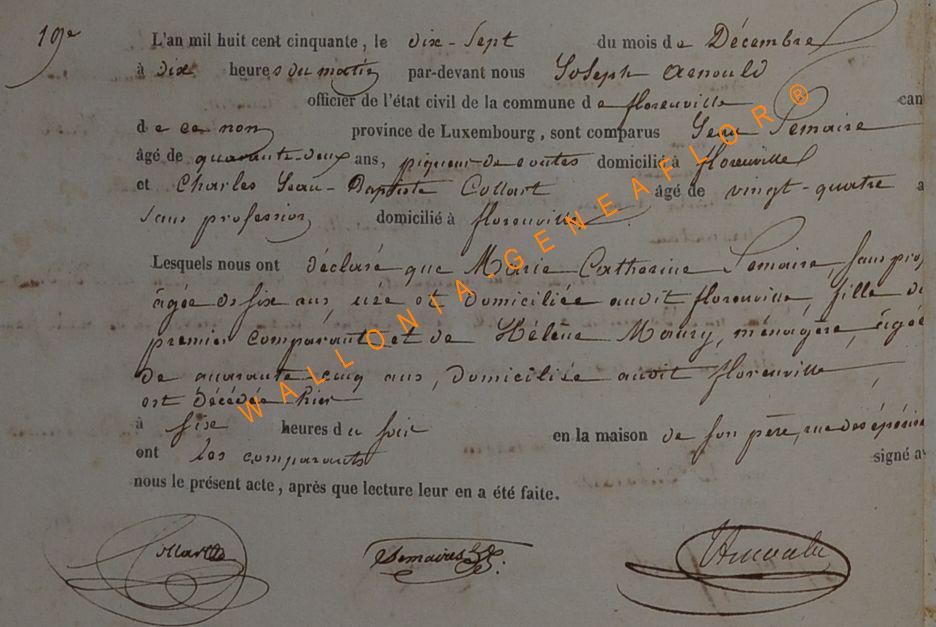 19e
L'an mil huit cent cinquante, le dix-Sept du mois de Décembre
à dix heures du matin par-devant nous Joseph Arnould
officier de l'état civil de la commune de florenville can
de ce nom province de Luxembourg, sont comparus Jean Lemaire
âgé de quarante-deux ans, piqueur de routes domicilié à florenville
et Charles Jean-Baptiste Collart âgé de vingt-quatre a
sans profession domicilié à florenville
Lesquels nous ont déclaré que Marie Catherine Lemaire, sans pro
âgée de six ans, née et domiciliée audit florenville, fille du
premier comparant et de Hélène Maury, ménagère, âgée
de quarante-cinq ans, domiciliée audit florenville
est décédée hier
à six heures du soir en la maison de son père, rue des
ont les comparants signé av
nous le présent acte, après que lecture leur en a été faite.
Collart Lemaire Arnould
WALLONIA-GENEAFLOR®